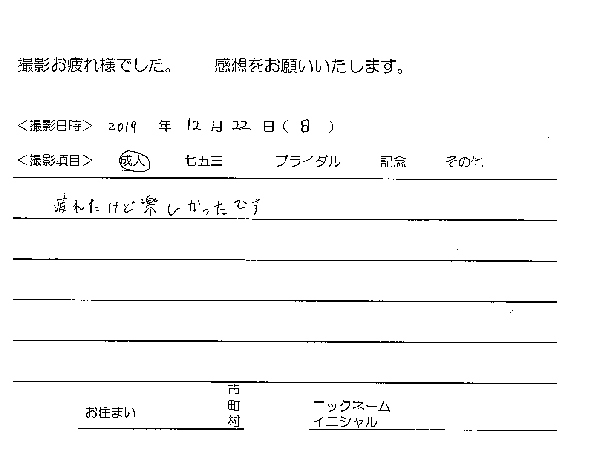 撮影お疲れ様でした。 感想をお願いいたします。
＜撮影日時＞ 2019 年 12 月 22 日（日）
＜撮影項目＞ 成人 七五三 ブライダル 記念 その他
疲れたけど楽しかったです
お住まい 市 町 村 ニックネーム イニシャル